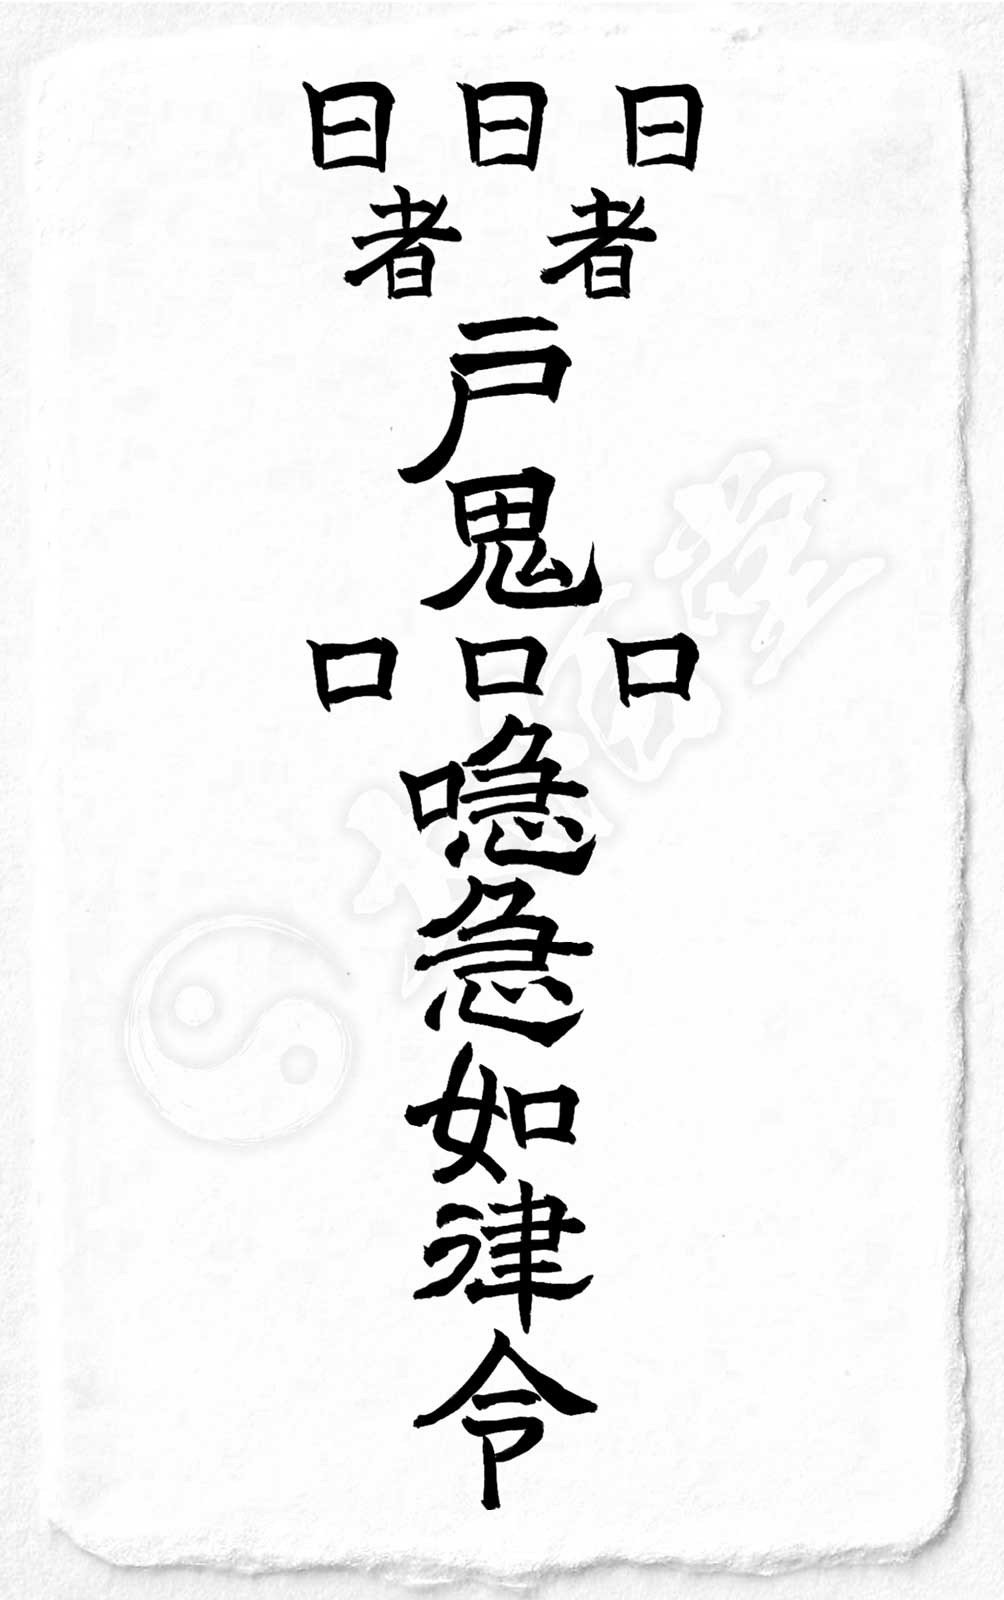 日 日 日
者 者
戸
鬼
口 口 口
喼
急
如
律
令